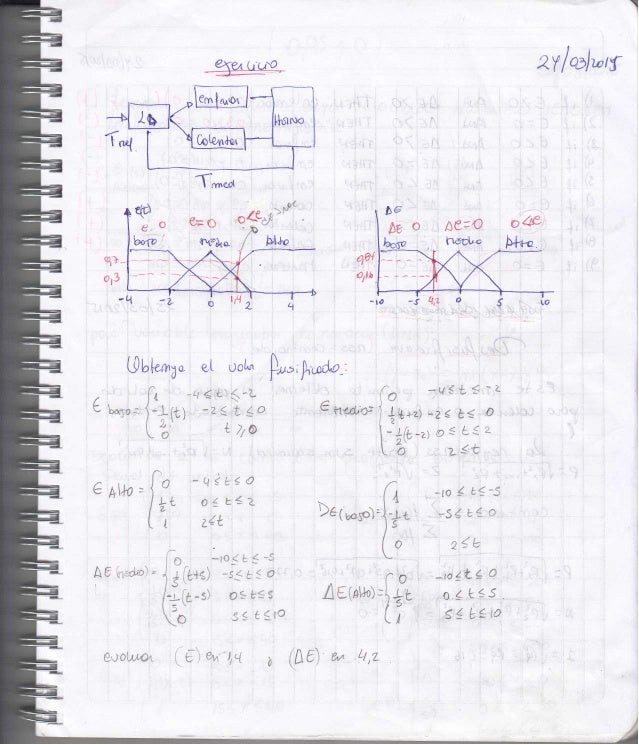 ejercicio
24/03/2015
enfriador
Horno
Calentar
Tref
Tmed
e(t)
e=0
0<e
bajo
medio
Alto
0,7
0,3
-4 -2 0 1,4 2 4
ΔE
ΔE 0
Δe=0
0<Δe
bajo
medio
Alto
0,84
0,16
-10 -5 4,2 0 5 10
Obtenga el valor fusificado:
E bajo = { 1 -4≤t≤-2
-1/2(t) -2≤t≤0
0 t≥0
E medio = { 0 -4≤t≤-2
1/2(t+2) -2≤t≤0
-1/2(t-2) 0≤t≤2
0 2≤t
E Alto = { 0 -4≤t≤0
1/2 t 0≤t≤2
1 2≤t
DE(bajo) = { 1 -10≤t≤-5
-1/5 t -5≤t≤0
0 2≤t
ΔE(medio) = { 0 -10≤t≤-5
1/5(t+5) -5≤t≤0
-1/5(t-5) 0≤t≤5
0 5≤t≤10
ΔE(Alto) = { 0 -10≤t≤0
1/5 t 0≤t≤5
1 5≤t≤10
evaluar (E) en 1,4 y (ΔE) en 4,2